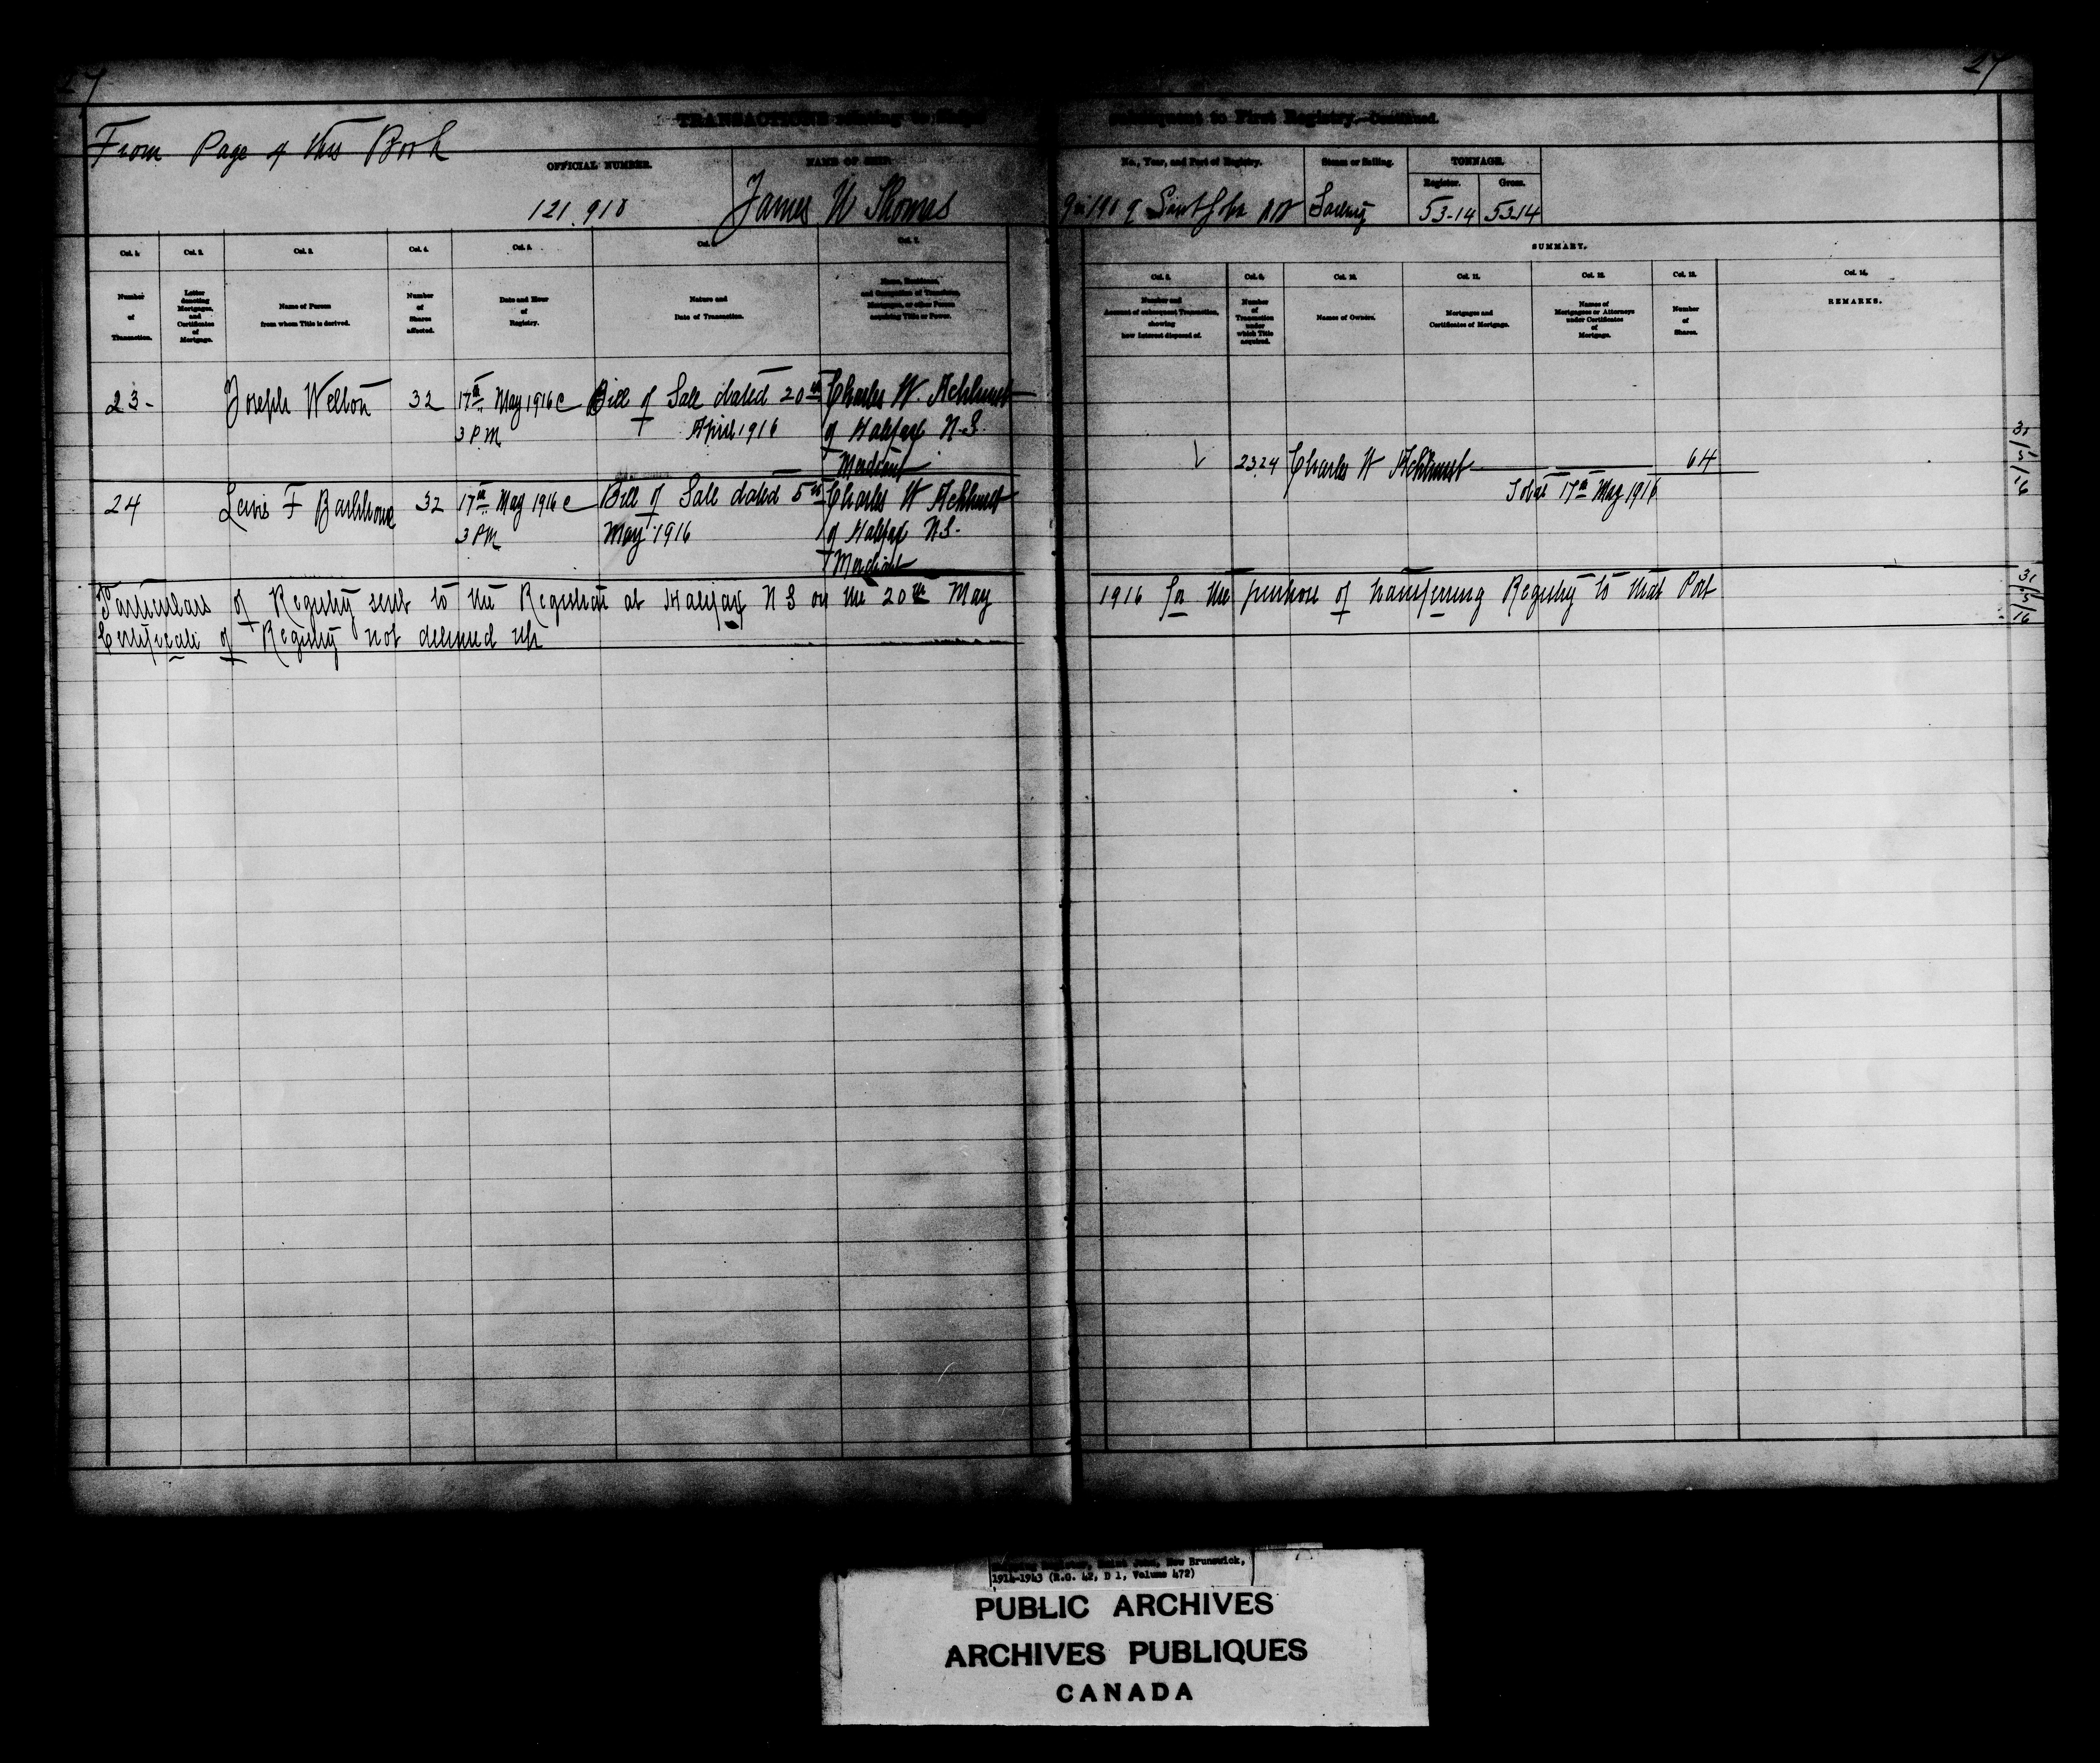 27
27
TRANSACTIONS relating to Ships subsequent to First Registry.—Continued.
From Page of this Book
OFFICIAL NUMBER.
NAME OF SHIP.
No., Year, and Port of Registry.
Steam or Sailing.
TONNAGE.
Register.
Gross.
121.918
James W Thomas
Saint John NB
Sailing
53-14
53-14
SUMMARY.
Col. 1.
Col. 2.
Col. 3.
Col. 4.
Col. 5.
Col. 6.
Col. 7.
Col. 8.
Col. 9.
Col. 10.
Col. 11.
Col. 12.
Col. 13.
Col. 14.
Number of Transaction.
Letter denoting Mortgages, and Certificates of Mortgage.
Name of Person from whom Title is derived.
Number of Shares affected.
Date and Hour of Registry.
Nature and Date of Transaction.
Name, Residence, and Occupation of Transferee, Mortgagee, or other Person acquiring Title or Power.
Number and Account of subsequent Transaction, showing how Interest disposed of.
Number of Transaction under which Title acquired.
Names of Owners.
Mortgages and Certificates of Mortgage.
Names of Mortgagees or Attorneys under Certificates of Mortgage.
Number of Shares.
REMARKS.
23-
Joseph Welton
32
17th May 1916
3 PM
Bill of Sale dated 20th
April 1916
Charles W.
of Halifax N.S.
Merchant
23.24
Charles W
64
17th May 1916
24
Lewis F
32
17th May 1916
3 PM
Bill of Sale dated 5th
May 1916
Charles W
of Halifax N.S.
Merchant
Particulars of Registry sent to the Registrar at Halifax N S on the 20th May 1916 for the purpose of transferring Registry to that Port
Certificate of Registry not delivered up
31/5/16
Shipping Register, Saint John, New Brunswick,
1914-1943 (R.G. 42, D 1, Volume 472)
PUBLIC ARCHIVES
ARCHIVES PUBLIQUES
CANADA